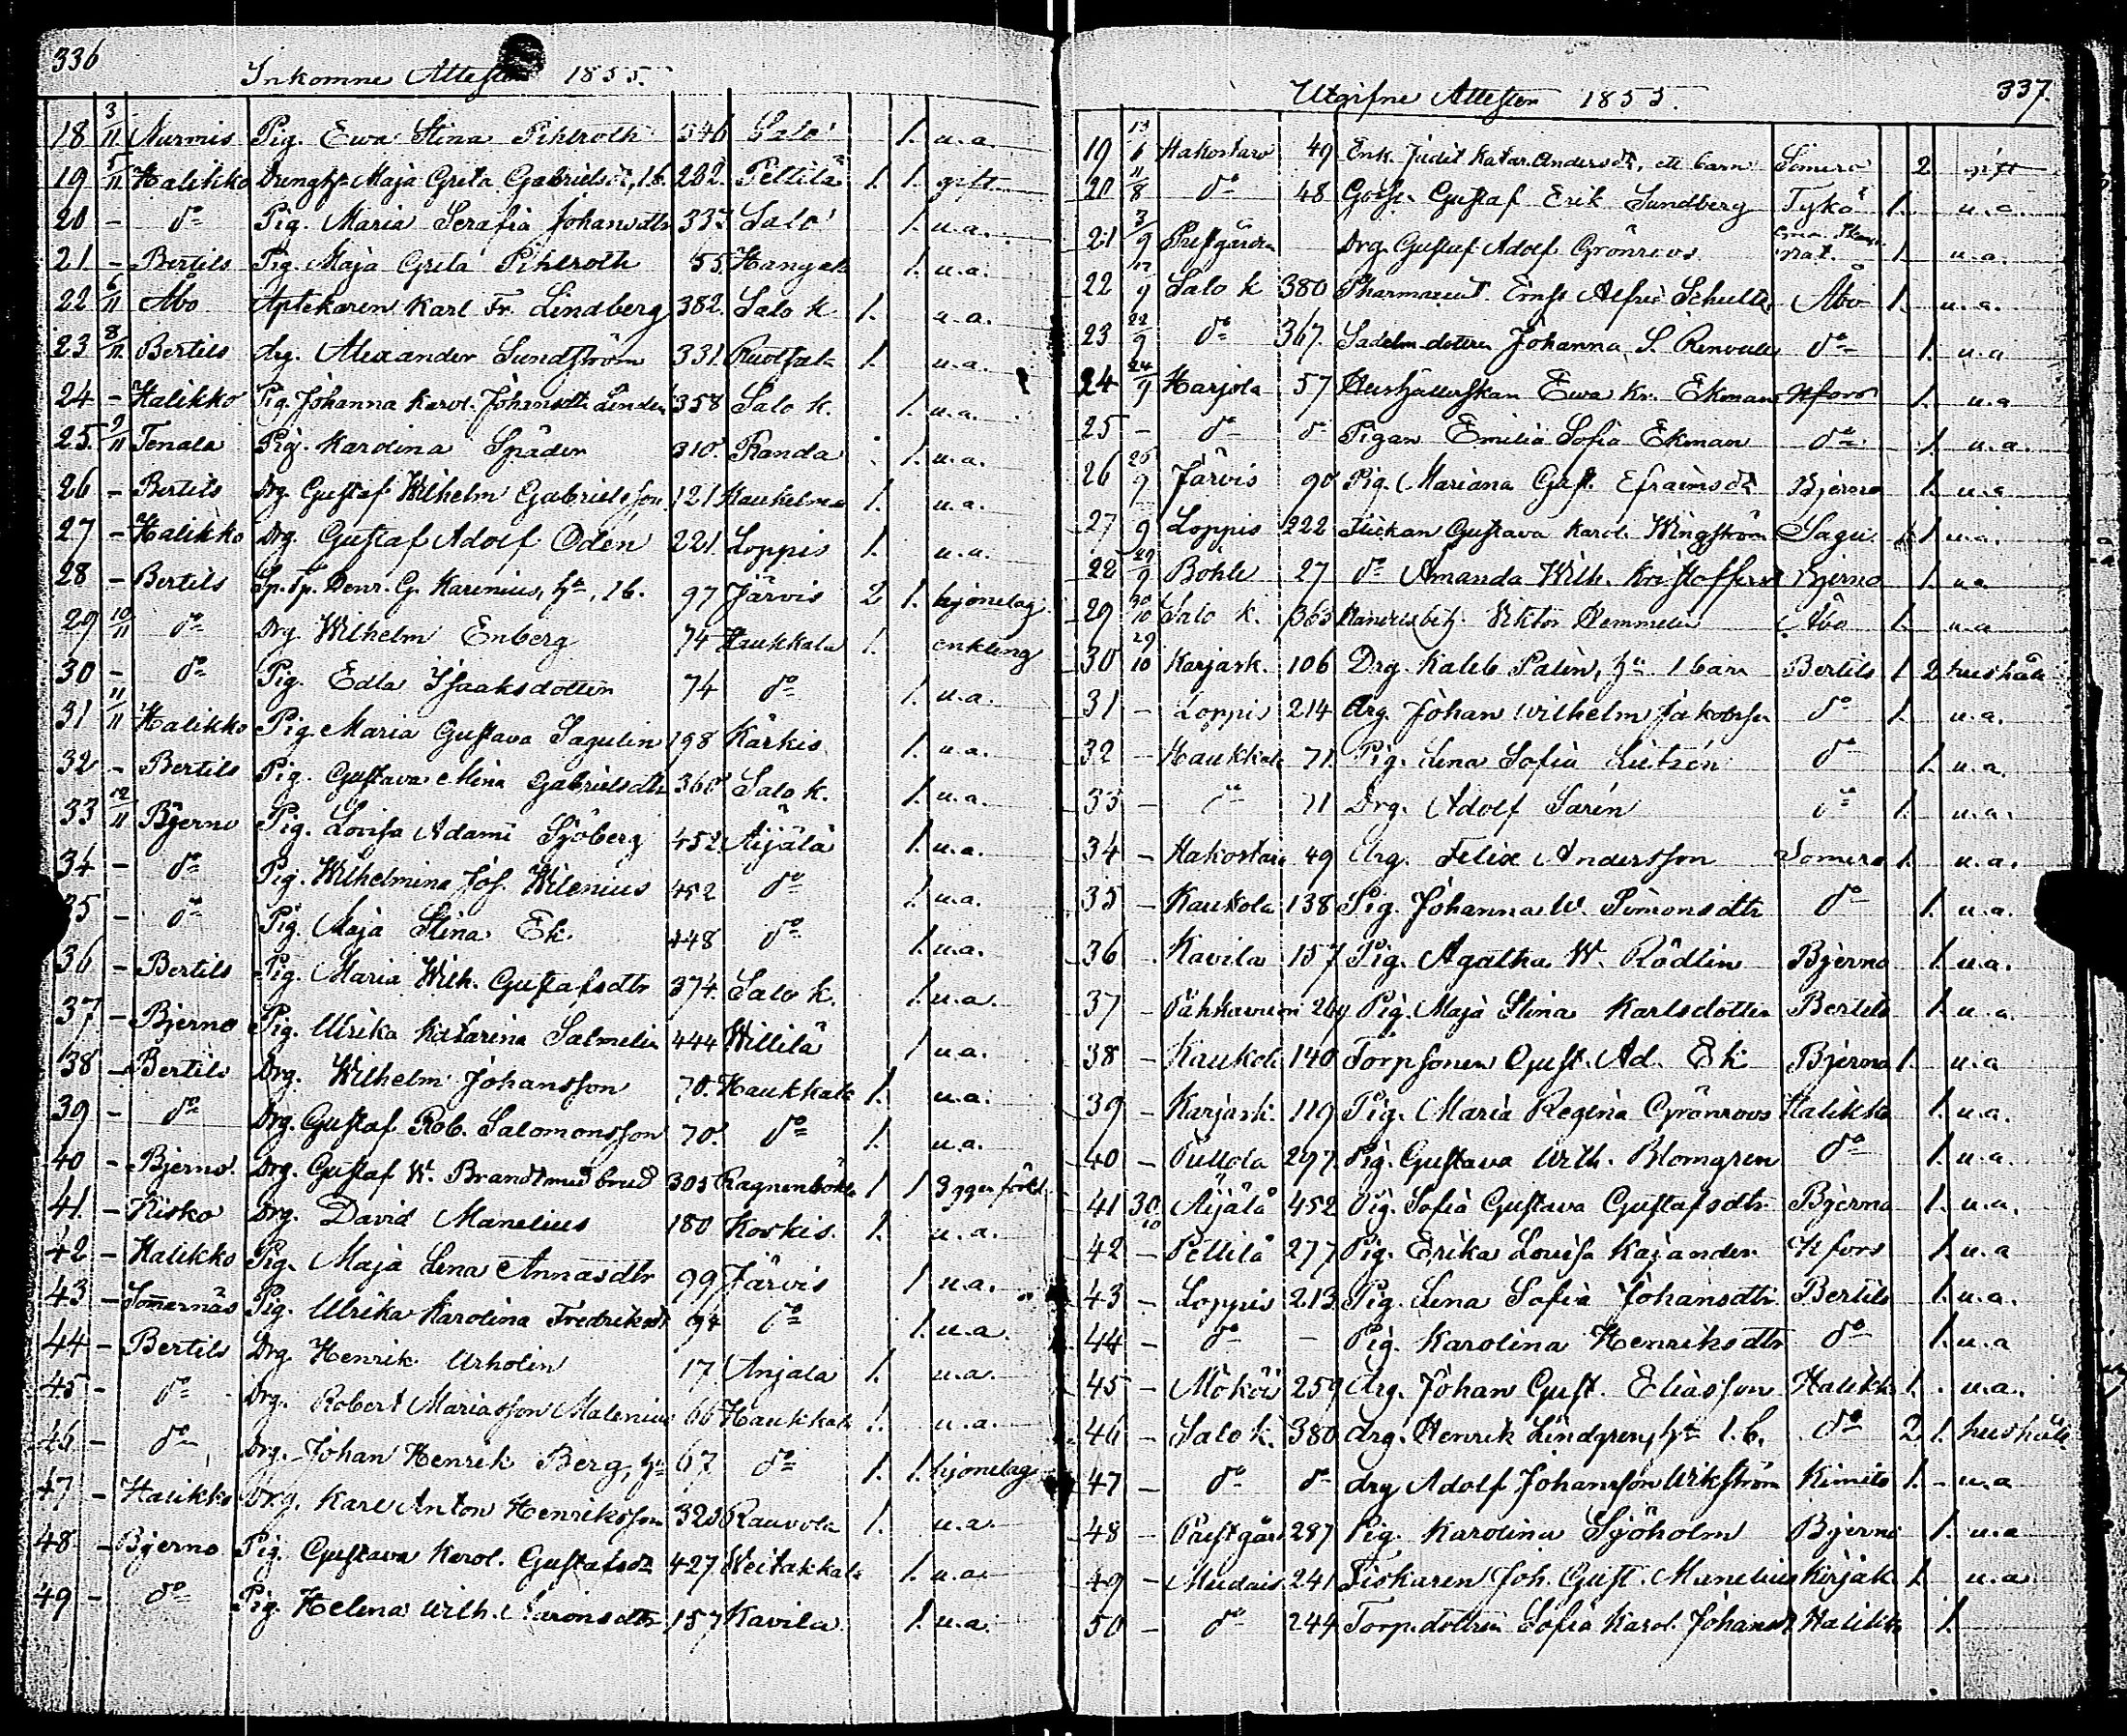 336
Inkomne Attester 1855.
18 3/11 Nurmis Pig. Ewa Stina Pihlroth 346 Salo 1. u.a.
19 5/11 Halikko Dreng hu Maja Greta Gabrielsdr, 1 b. 282. Pettilä 1. 1. gift
20 - do Pig. Maria Serafia Johansdtr 337 Salo 1. u.a.
21 - Bertils Pig. Maja Greta Pihlroth 55. 1. u.a.
22 6/11 Åbo Aptekaren Karl Fr. Lindberg 382. Salo k 1. u.a.
23 8/11 Bertils drg. Alexander Sundström 331. 1. u.a.
24 - Halikko Pig. Johanna Karol. Johansdtr Linden 358 Salo k. 1. u.a.
25. 9/11 Tenala Pig. Karolina Späder 310. Randa 1. u.a.
26 - Bertils Drg. Gustaf Wilhelm Gabrielsson 121 1. u.a.
27 - Halikko Drg. Gustaf Adolf Oden 221. Loppis 1. u.a.
28 - Bertils G. Karenius, hu, 1 b. 97 Järvis 2 1. hjonelag
29 10/11 do Drg Wilhelm Enberg 74 Haukkala 1. enkling
30 - do Pig. Edla Isaaksdotter 74 do 1. u.a.
31 11/11 Halikko Pig. Maria Gustava Sagulin 198 Kärkis 1. u.a.
32 - Bertils Pig. Gustava Mina Gabrielsdtr 360 Salo k. 1. u.a.
33 12/11 Bjerno Pig. Lovisa Adami Sjöberg 452. Aijälä 1. u.a.
34 - do Pig. Wilhelmina Jos. Wilenius 452 do 1. u.a.
35 - do Pig. Maja Stina Ek. 448 do 1. u.a.
36 - Bertils Pig. Maria Wilh. Gustafsdtr 374. Salo k. 1. u.a.
37. - Bjerno Pig. Ulrika Katarina Salmelin 444 Willilä 1 u.a.
38 - Bertils Drg. Wilhelm Johansson 70. Haukkala 1. u.a.
39 - do Drg. Gustaf Rob. Salomonsson 70. do 1. u.a.
40 - Bjerno. Drg. Gustaf W. Brandt med brud 305 Ragnenböle 1 1 3 gger förkl.
41. - Kisko Drg. David Manelius 180 Koskis. 1. u.a.
42 - Halikko Pig. Maja Lena Annasdtr 99 Järvis 1 u.a.
43 - Somernäs Pig. Ulrika Karolina Fredriksdr 94 do 1. u.a.
44 - Bertils Drg. Henrik Urholin 17 Anjala 1. u.a.
45 - do Drg. Robert Mariasson Malenius 66 Haukkala 1. u.a.
46 - do Drg. Johan Henrik Berg, hu 67 do 1. 1. hjonelag
47 - Halikko Drg. Karl Anton Henriksson 320 Rauvola 1. u.a.
48 - Bjerno Pig. Gustava Karol. Gustafsdr 427 Veitakkala 1. u.a.
49 - do Pig. Helena Wilh. Aaronsdtr 157 Kavila 1. u.a.
Utgifne Attester 1855.
337.
19 13/6 Hakostaro 49 Enk. Judit Katar. Andersdr, ett barn Somero 2 gift
20 11/8 do 48 Gustaf Erik Sundberg Tykö 1. u.a.
21 3/9 Prestgården Drg Gustaf Adolf Grönroos 1. u.a.
22 17/9 Salo k 380 Pharmaceut. Ernst Alfred Schultz Åbo 1. u.a.
23 22/9 do 367. Sadelm. dottern Johanna S. Renvall do 1. u.a
24 24/9 Harjola 57 Hushållerskan Ewa Kr. Ekman Hfors 1. u.a
25 - do do Pigan Emilia Sofia Ekman do 1. u.a.
26 26/9 Järvis 90 Pig. Mariana Gust. Efraimsdr Bjerno 1. u.a
27 9 Loppis 222 Flickan Gustava Karol. Wingström Sagu 1 u.a.
28 29/9 Böhle 27 do Amanda Wilh. Kristoffersdr Bjerno 1. u.a
29 30/10 Salo k. 363 Handelsbetj. Viktor Hemmelin Åbo 1. u.a
30 29/10 Karjask. 106 Drg. Kaleb Palén, hu 1 barn Bertils 1 2 hushåll
31 - Loppis 214 drg. Johan Wilhelm Jakobsson do 1. u.a.
32 - Haukkala 71. Pig. Lena Sofia Lietzén do 1. u.a.
33 - do 71 Drg. Adolf Sarén do 1. u.a.
34 - Hakostaro 49 drg. Felix Andersson Somero 1. u.a.
35 - Kaukola 138 Pig. Johanna W. Simonsdtr do 1. u.a.
36 - Kavila 157 Pig. Agatha W. Rödlin Bjerno 1. u.a.
37 - 264 Pig. Maja Stina Karlsdotter Bertils 1. u.a.
38 - Kaukola 140 Torpsonen Gust. Ad. Ek Bjerno 1. u.a
39 - Karjask. 119 Pig. Maria Regina Grönroos Halikko 1. u.a.
40 - Pullola 297. Pig. Gustava Wilh. Blomgren do 1. u.a.
41 30/10 Aijälä 452 Pig. Sofia Gustava Gustafsdtr Bjerno 1. u.a.
42 - Pettilä 277 Pig. Erika Lovisa Kajander Hfors 1. u.a
43 - Loppis 213 Pig. Lena Sofia Johansdtr Bertils 1. u.a.
44 - do - Pig. Karolina Henriksdtr do 1. u.a
45 - Mököi 259 drg. Johan Gust. Eliasson Halikko 1. u.a.
46 - Salo k. 380 drg. Henrik Lindgren, hu 1. b. do 2 1. hushåll
47 - do do drg Adolf Johansson Wikström Kimito 1. - u.a
48 - Prestgård 287 Pig. Karolina Sjöholm Bjerno 1. u.a
49 - Muidais 241 Fiskaren Joh. Gust. Manelius Kirjak. 1. u.a
50 - do 244 Torp. dottern Sofia Karol. Johansdr Halikko 1.